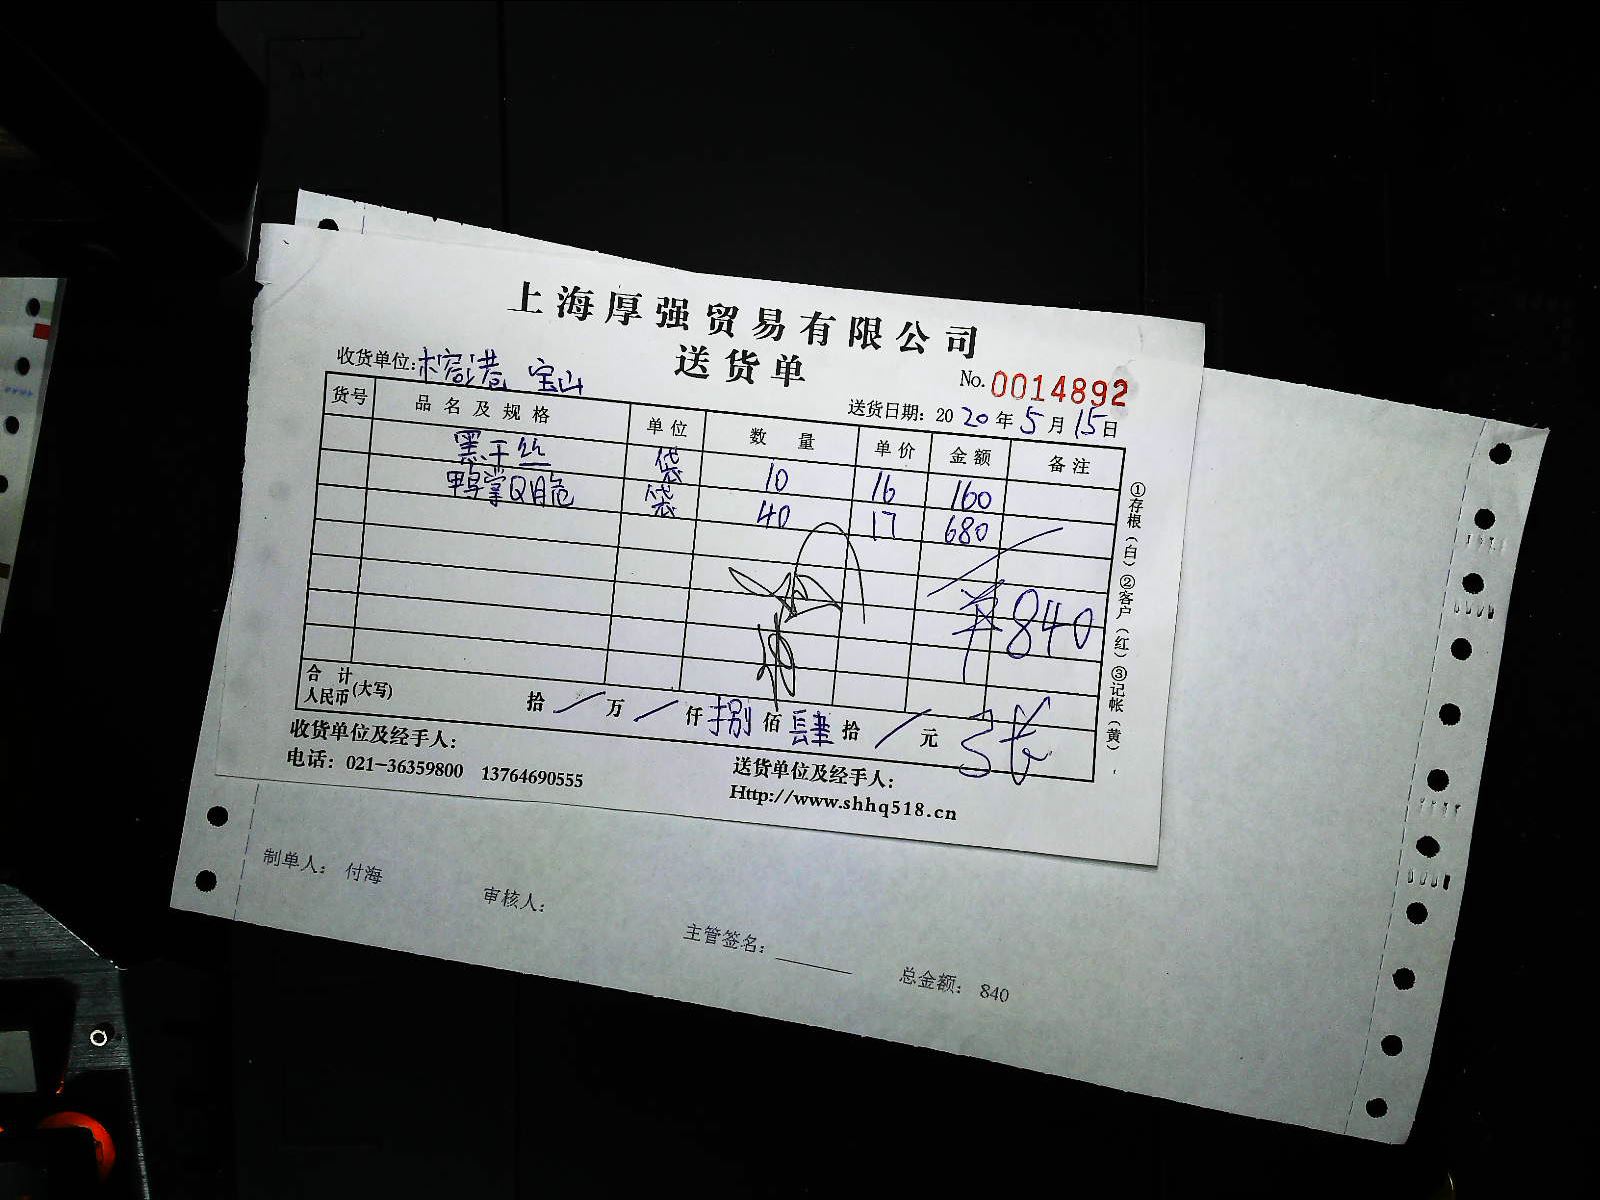 上海厚强贸易有限公司
送货单
收货单位:榕港 宝山
No.0014892
送货日期: 2020年5月15日
货号 品名及规格 单位 数量 单价 金额 备注
黑干丝 袋 10 16 160
鸭掌Q脆 袋 40 17 680
¥840
合计人民币(大写) 拾/万/仟捌佰肆拾/元
3张
①存根(白)②客户(红)③记帐(黄)
收货单位及经手人: 送货单位及经手人:
电话: 021-36359800 13764690555 Http://www.shhq518.cn
制单人: 付海 审核人: 主管签名: 总金额: 840